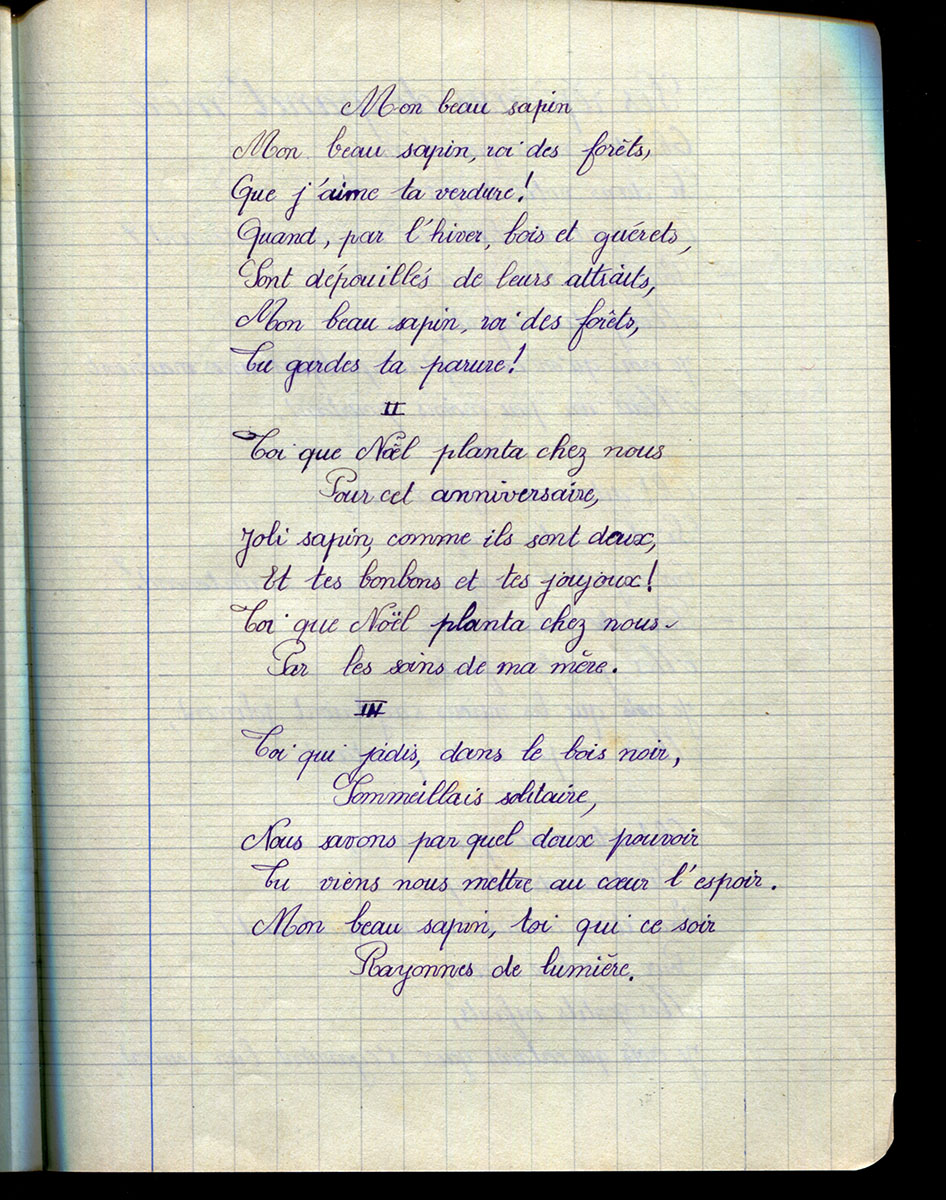 Mon beau sapin
Mon beau sapin, roi des forêts,
Que j'aime ta verdure!
Quand, par l'hiver, bois et guérets,
Sont dépouillés de leurs attraits,
Mon beau sapin, roi des forêts,
Tu gardes ta parure!
II
Toi que Noël planta chez nous
Pour cet anniversaire,
Joli sapin, comme ils sont doux,
Et tes bonbons et tes joujoux!
Toi que Noël planta chez nous
Par les soins de ma mère.
IV
Toi qui jadis, dans le bois noir,
Sommeillais solitaire,
Nous savons par quel doux pouvoir
Tu viens nous mettre au cœur l'espoir.
Mon beau sapin, toi qui ce soir
Rayonnes de lumière.